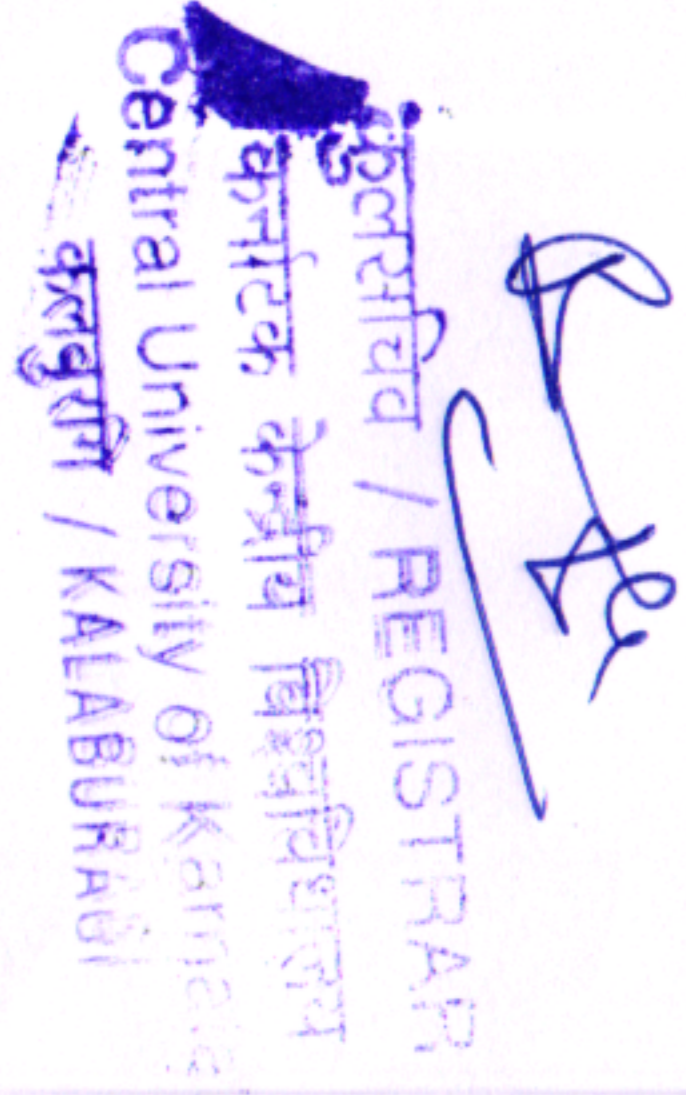 कुलसचिव / REGISTRAR
कर्नाटक केन्द्रीय विश्वविद्यालय
Central University of
कलबुरगि / KALABURAGI